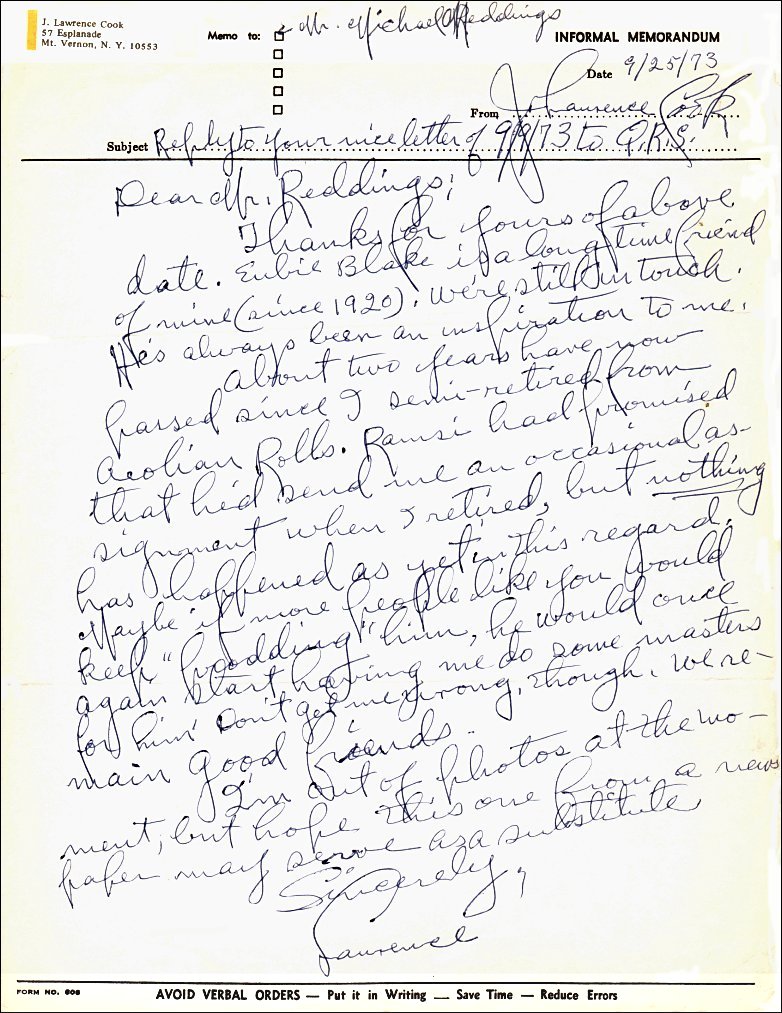 J. Lawrence Cook
57 Esplanade
Mt. Vernon, N. Y. 10553
Memo to: Mr. Michael Reddings
INFORMAL MEMORANDUM
Date 9/25/73
From J. Lawrence Cook
Subject Reply to your nice letter of 9/9/73 to Q.R.S.
Dear Mr. Reddings;
Thanks for yours of above
date. Eubie Blake is a long time friend
of mine (since 1920). We're still in touch.
He's always been an inspiration to me.
About two years have now
passed since I semi-retired from
Aeolian Rolls. Ramsi had promised
that he'd send me an occasional as-
signment when I retired, but nothing
has happened as yet in this regard.
Maybe if more people like you would
keep "prodding" him, he would once
again start having me do some masters
for him. Don't get me wrong, though. We re-
main good friends.
I'm out of photos at the mo-
ment, but hope this one from a news
paper may serve as a substitute
Sincerely,
Lawrence
FORM NO. 606
AVOID VERBAL ORDERS — Put it in Writing — Save Time — Reduce Errors